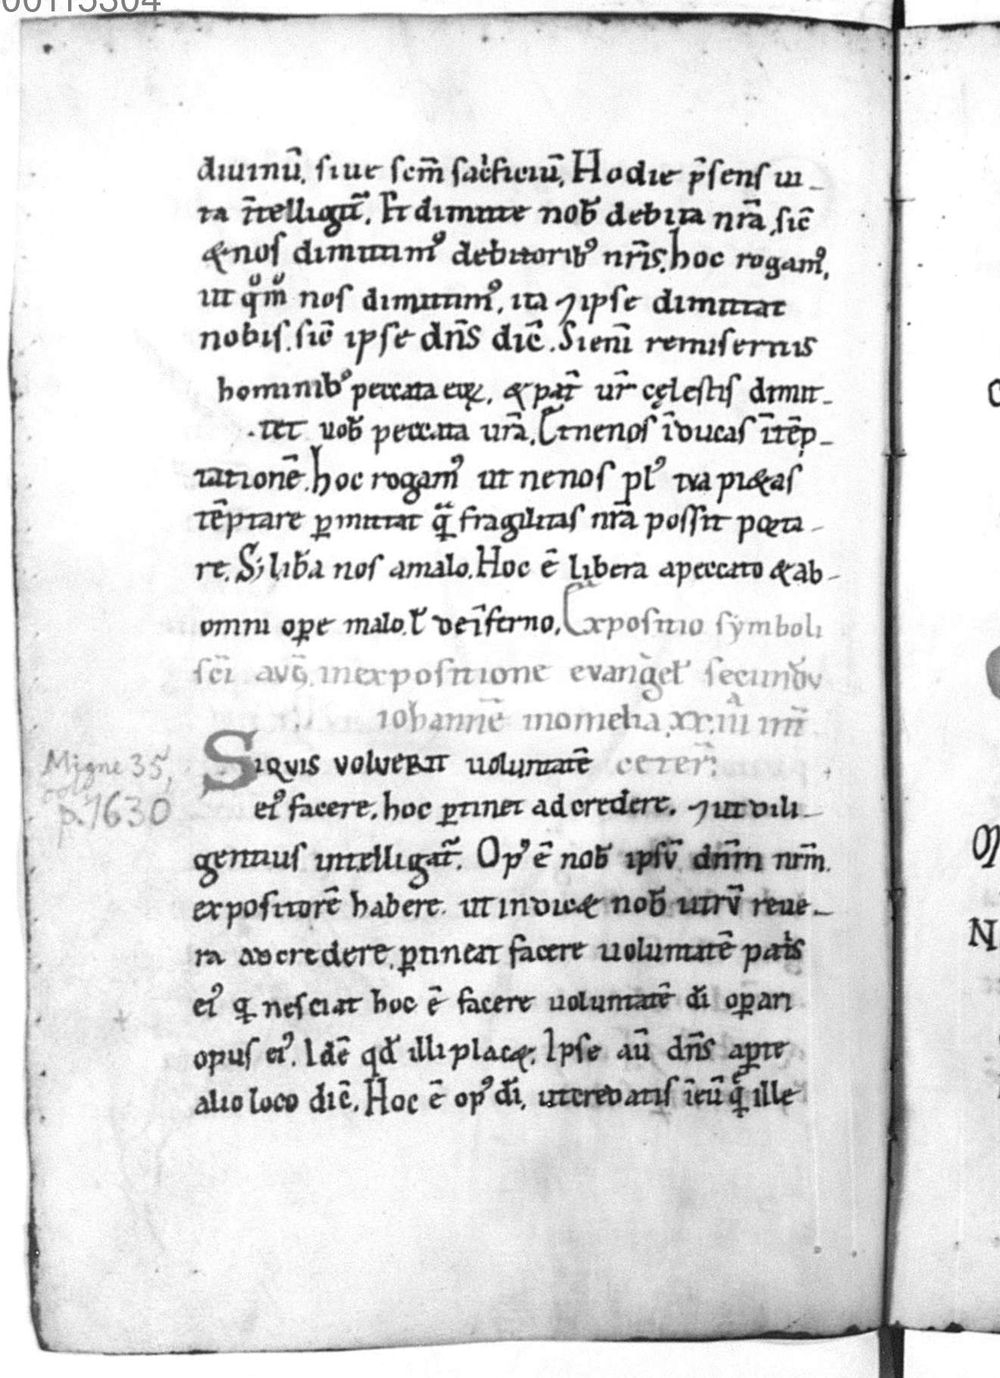 00115304
diuinū. siue scm̄ sacͥficiū. Hodie p̄sens ui-
ta īntelligit᷑. Et dimitte nob̄ debita nrā, sic̄
&nos dimittimꝰ debitoribꝰ nrīs. hoc rogamꝰ,
ut qͦmͦ nos dimittimꝰ, ita ⁊ipse dimittat
nobis. sic̄ ipse dn̄s dic̄. Sienī remiseritis
hominibꝰ peccata eoꝝ, & pat̄ ur̄ cęlestis dimit-
tet uob̄ peccata urā. Et nenos īducas ītēp-
tationē. hoc rogamꝰ ut nenos plꝰ tua pi&as
tēptare ꝑmittat q̄ fragilitas nrā possit porta-
re. S; lib̄a nos amalo. Hoc ē libera apeccato &ab-
omni oꝑe malo. ł deīferno. Expositio sẏmboli
sc̄i avḡ. inexpositione evangeł secundū
iohannē inomelia xxiiii
Migne 35,
cols
p. 1630
SIQVIS VOLVERIT uoluntatē ceter̄:
eiꝰ facere. hoc ꝑtinet adcredere. ⁊ut dili-
gentius intelligat᷑. Opꝰ ē nob̄ ipsū dn̄m nrm̄.
expositorē habere. ut indic& nob̄ utrū reue-
ra adcredere ꝑtineat facere uoluntatē patͥs
eiꝰ q nesciat hoc ē facere uoluntatē dī oꝑari
opus eiꝰ. Idē qd̄ illi plac&. Ipse aū dn̄s aꝑte
alio loco dic̄. Hoc ē opꝰ dī, utcredatis īeū quē ille